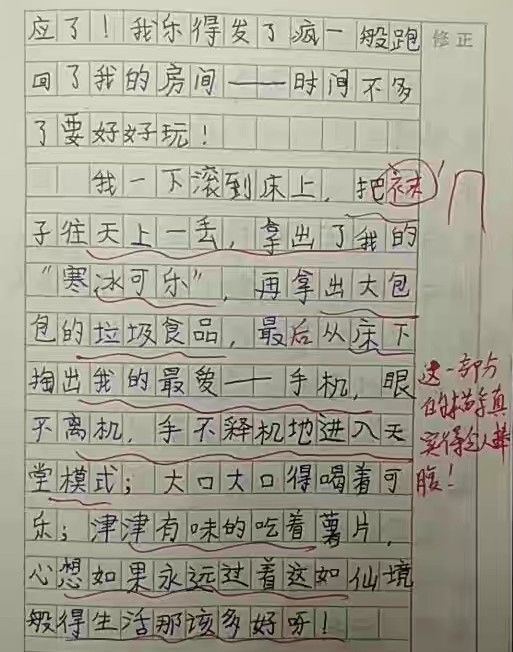 修正
应了！我乐得发了疯一般跑
回了我的房间——时间不多
了要好好玩！
我一下滚到床上，把袜
子往天上一丢，拿出了我的
“寒冰可乐”，再拿出大包
包的垃圾食品，最后从床下
掏出我的最爱——手机，眼
不离机，手不释机地进入天
堂模式；大口大口得喝着可
乐；津津有味的吃着薯片，
心想如果永远过着这如仙境
般得生活那该多好呀！
这一部分
的描写真
实得令人捧
腹！